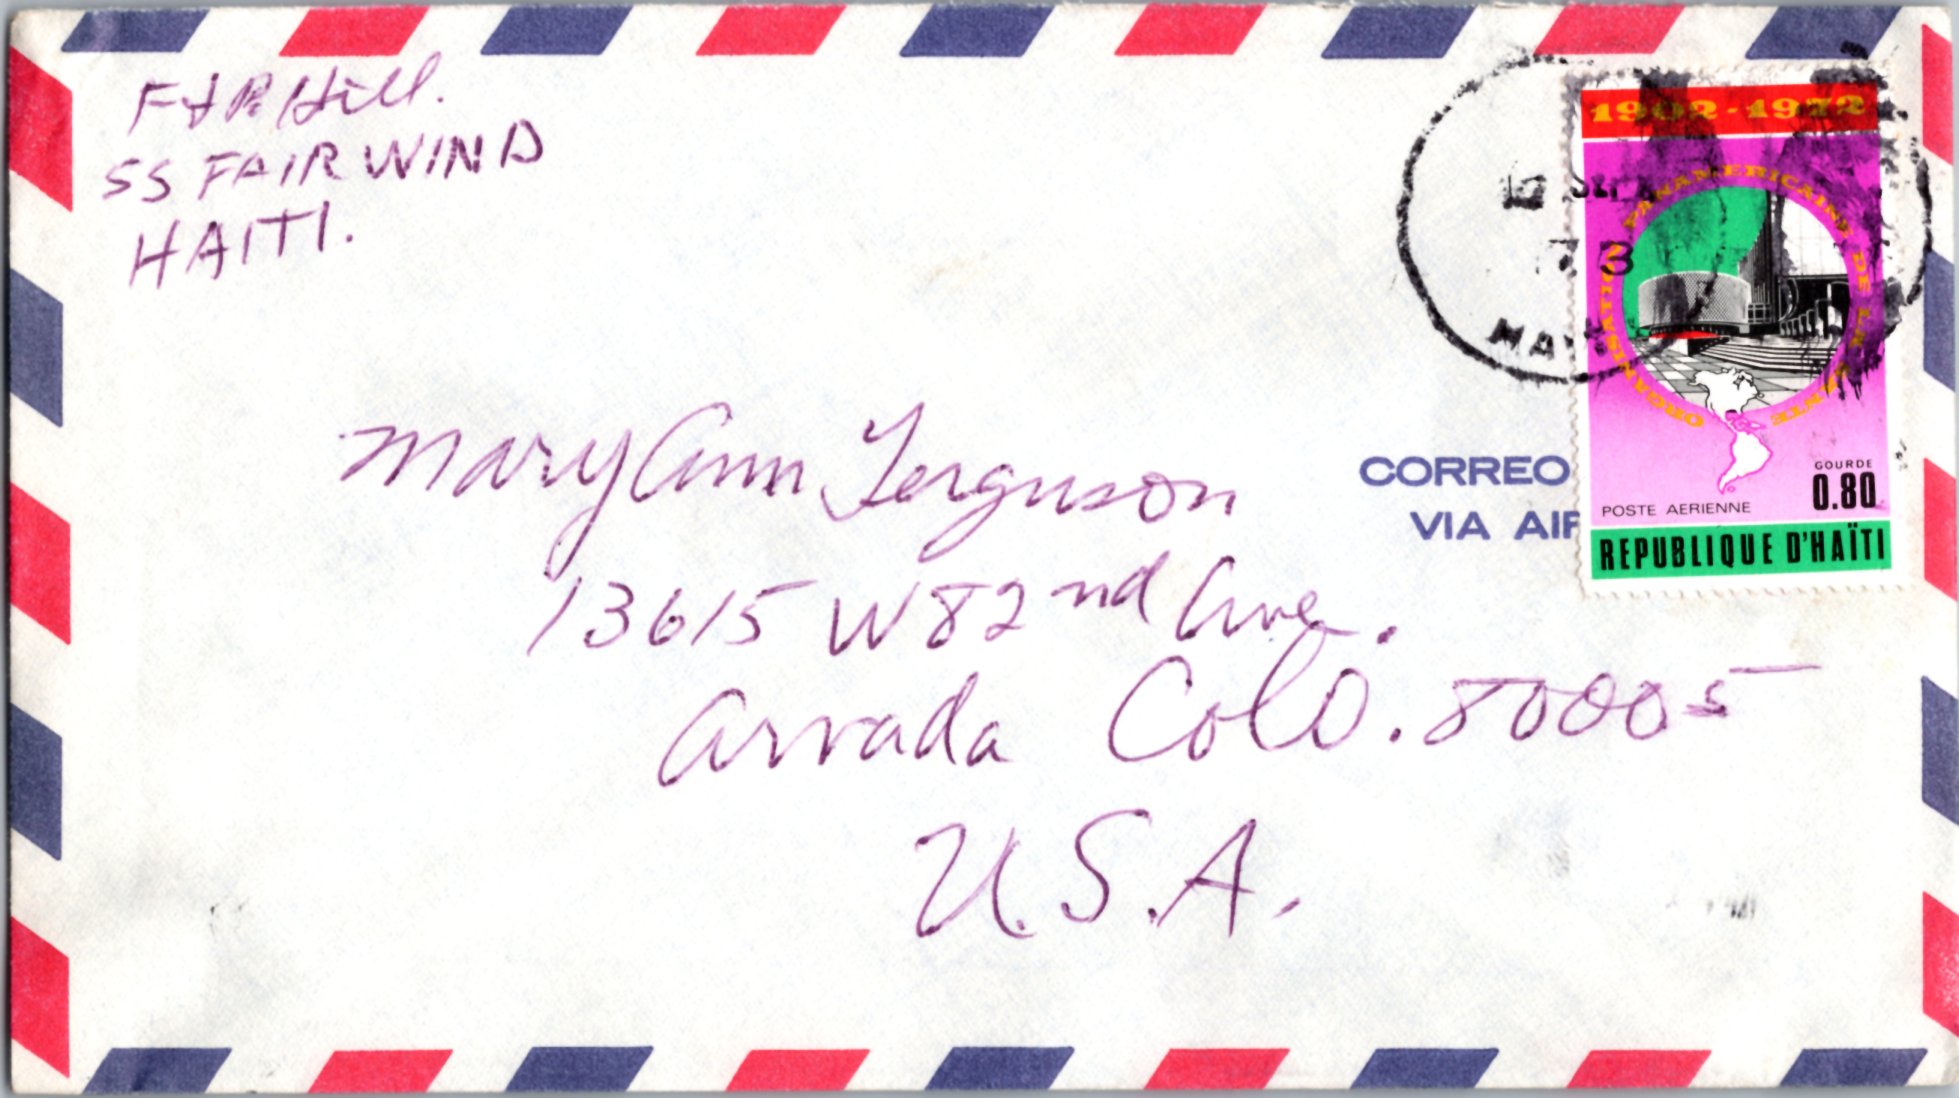 F & R Hill.
SS FAIR WIND
HAITI.
1902-1972
ORGANISATION PANAMERICAINE DE LA SANTE
GOURDE
0.80
POSTE AERIENNE
REPUBLIQUE D'HAÏTI
73
CORREO
VIA AIR
Mary Ann Ferguson
13615 W 82nd Ave.
Arvada Colo. 80005
U.S.A.